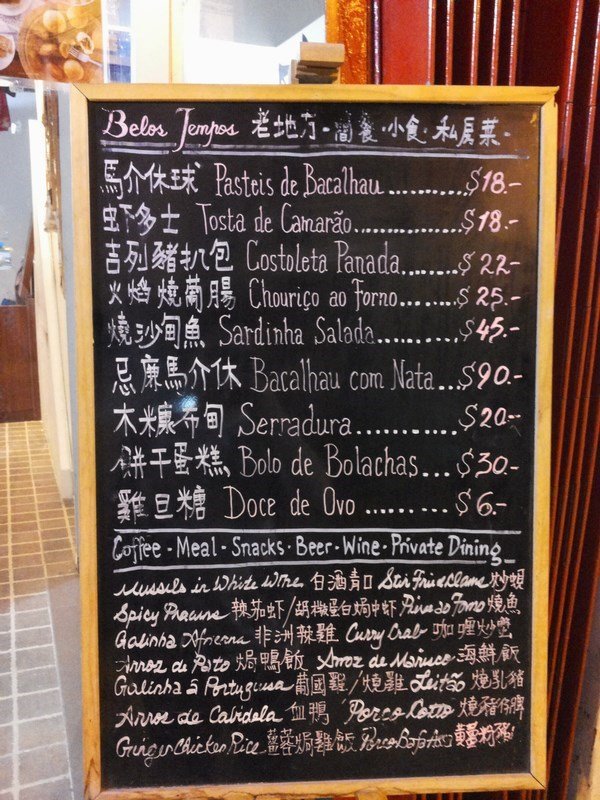 Belos Tempos 老地方-簡餐·小食·私房菜-
馬介休球 Pasteis de Bacalhau..........$18.-
虾多士 Tosta de Camarão..............$18.-
吉列豬扒包 Costoleta Panada........$22-
火焰燒葡腸 Chouriço ao Forno.......$25.-
燒沙甸魚 Sardinha Salada..........$45.-
忌廉馬介休 Bacalhau com Nata...$90.-
木糠布甸 Serradura............$20.-
餅干蛋糕 Bolo de Bolachas...$30-
雞旦糖 Doce de Ovo ........$6.-
Coffee·Meal-Snacks·Beer·Wine·Private Dining
Mussels in White Wine 白酒青口 Stir Fried Clams 炒蜆
Spicy Prawns 辣茄虾/胡椒蛋白焗中虾 ao Forno 燒魚
Galinha 非洲辣雞 Curry Crab 咖喱炒蟹
Arroz de Pato 焗鴨飯 Arroz de 海鮮飯
Galinha à Portuguesa 葡國雞/燒雞 Leitão 燒乳豬
Arros de Cabidela 血鴨 Porco 燒豬
Ginger Chicken Rice 薑蓉焗雞飯 Porco